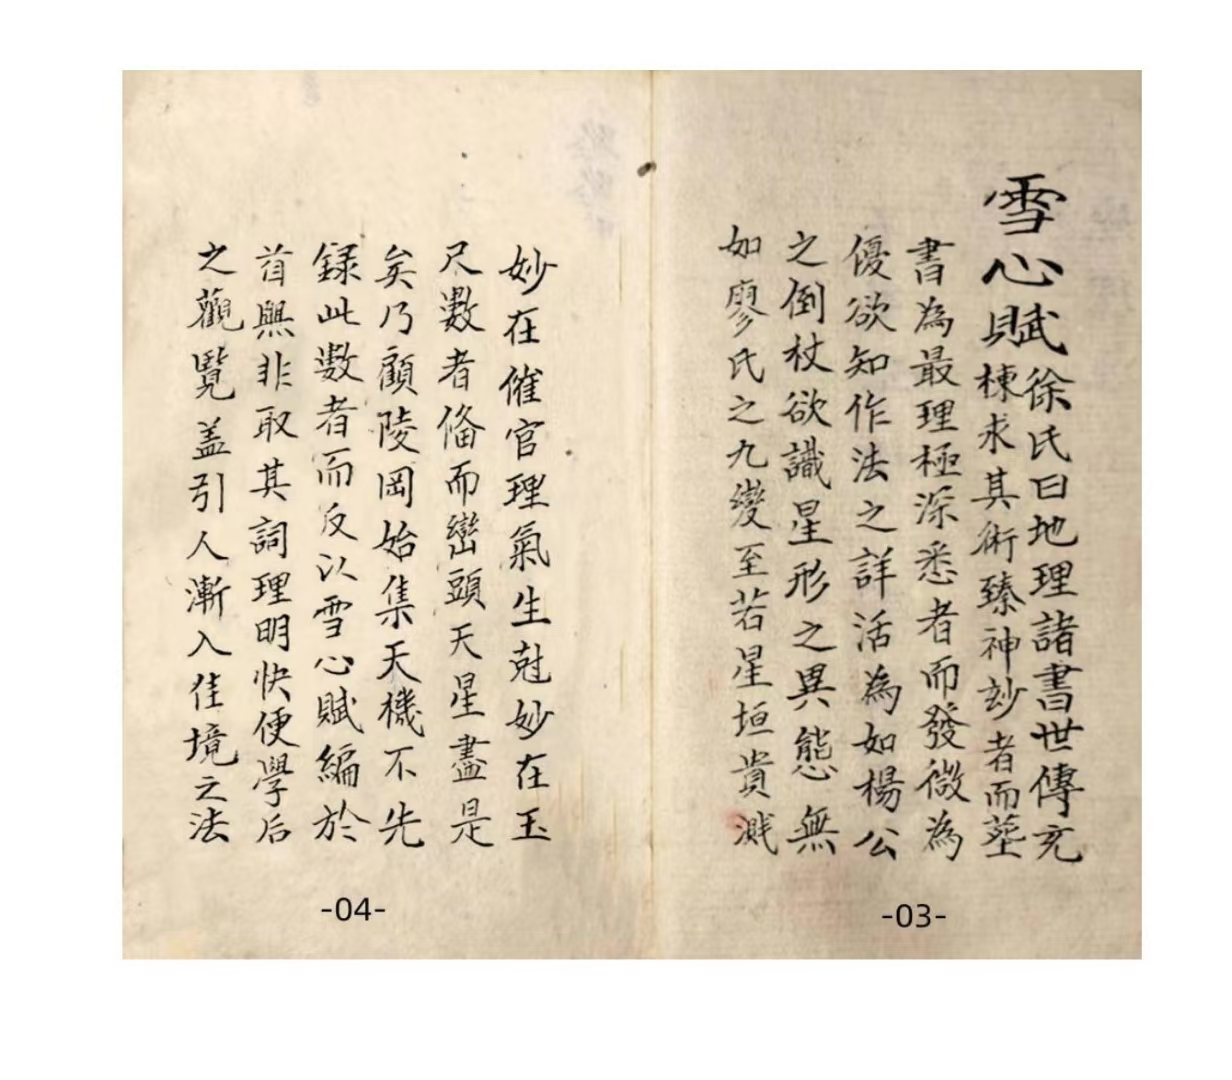 雪心賦
徐氏曰地理諸書世傳充
棟求其術臻神玅者而莝
書為最理極深悉者而發微為
優欲知作法之詳活為如楊公
之倒杖欲識星形之異態無
如廖氏之九變至若星垣貴濺
-03-
妙在催官理氣生尅妙在玉
尺數者俻而巒頭天星盡是
矣乃顧陵岡始集天機不先
録此數者而反以雪心賦編於
首輿非取其詞理明快便學后
之觀覽盖引人漸入佳境之法
-04-